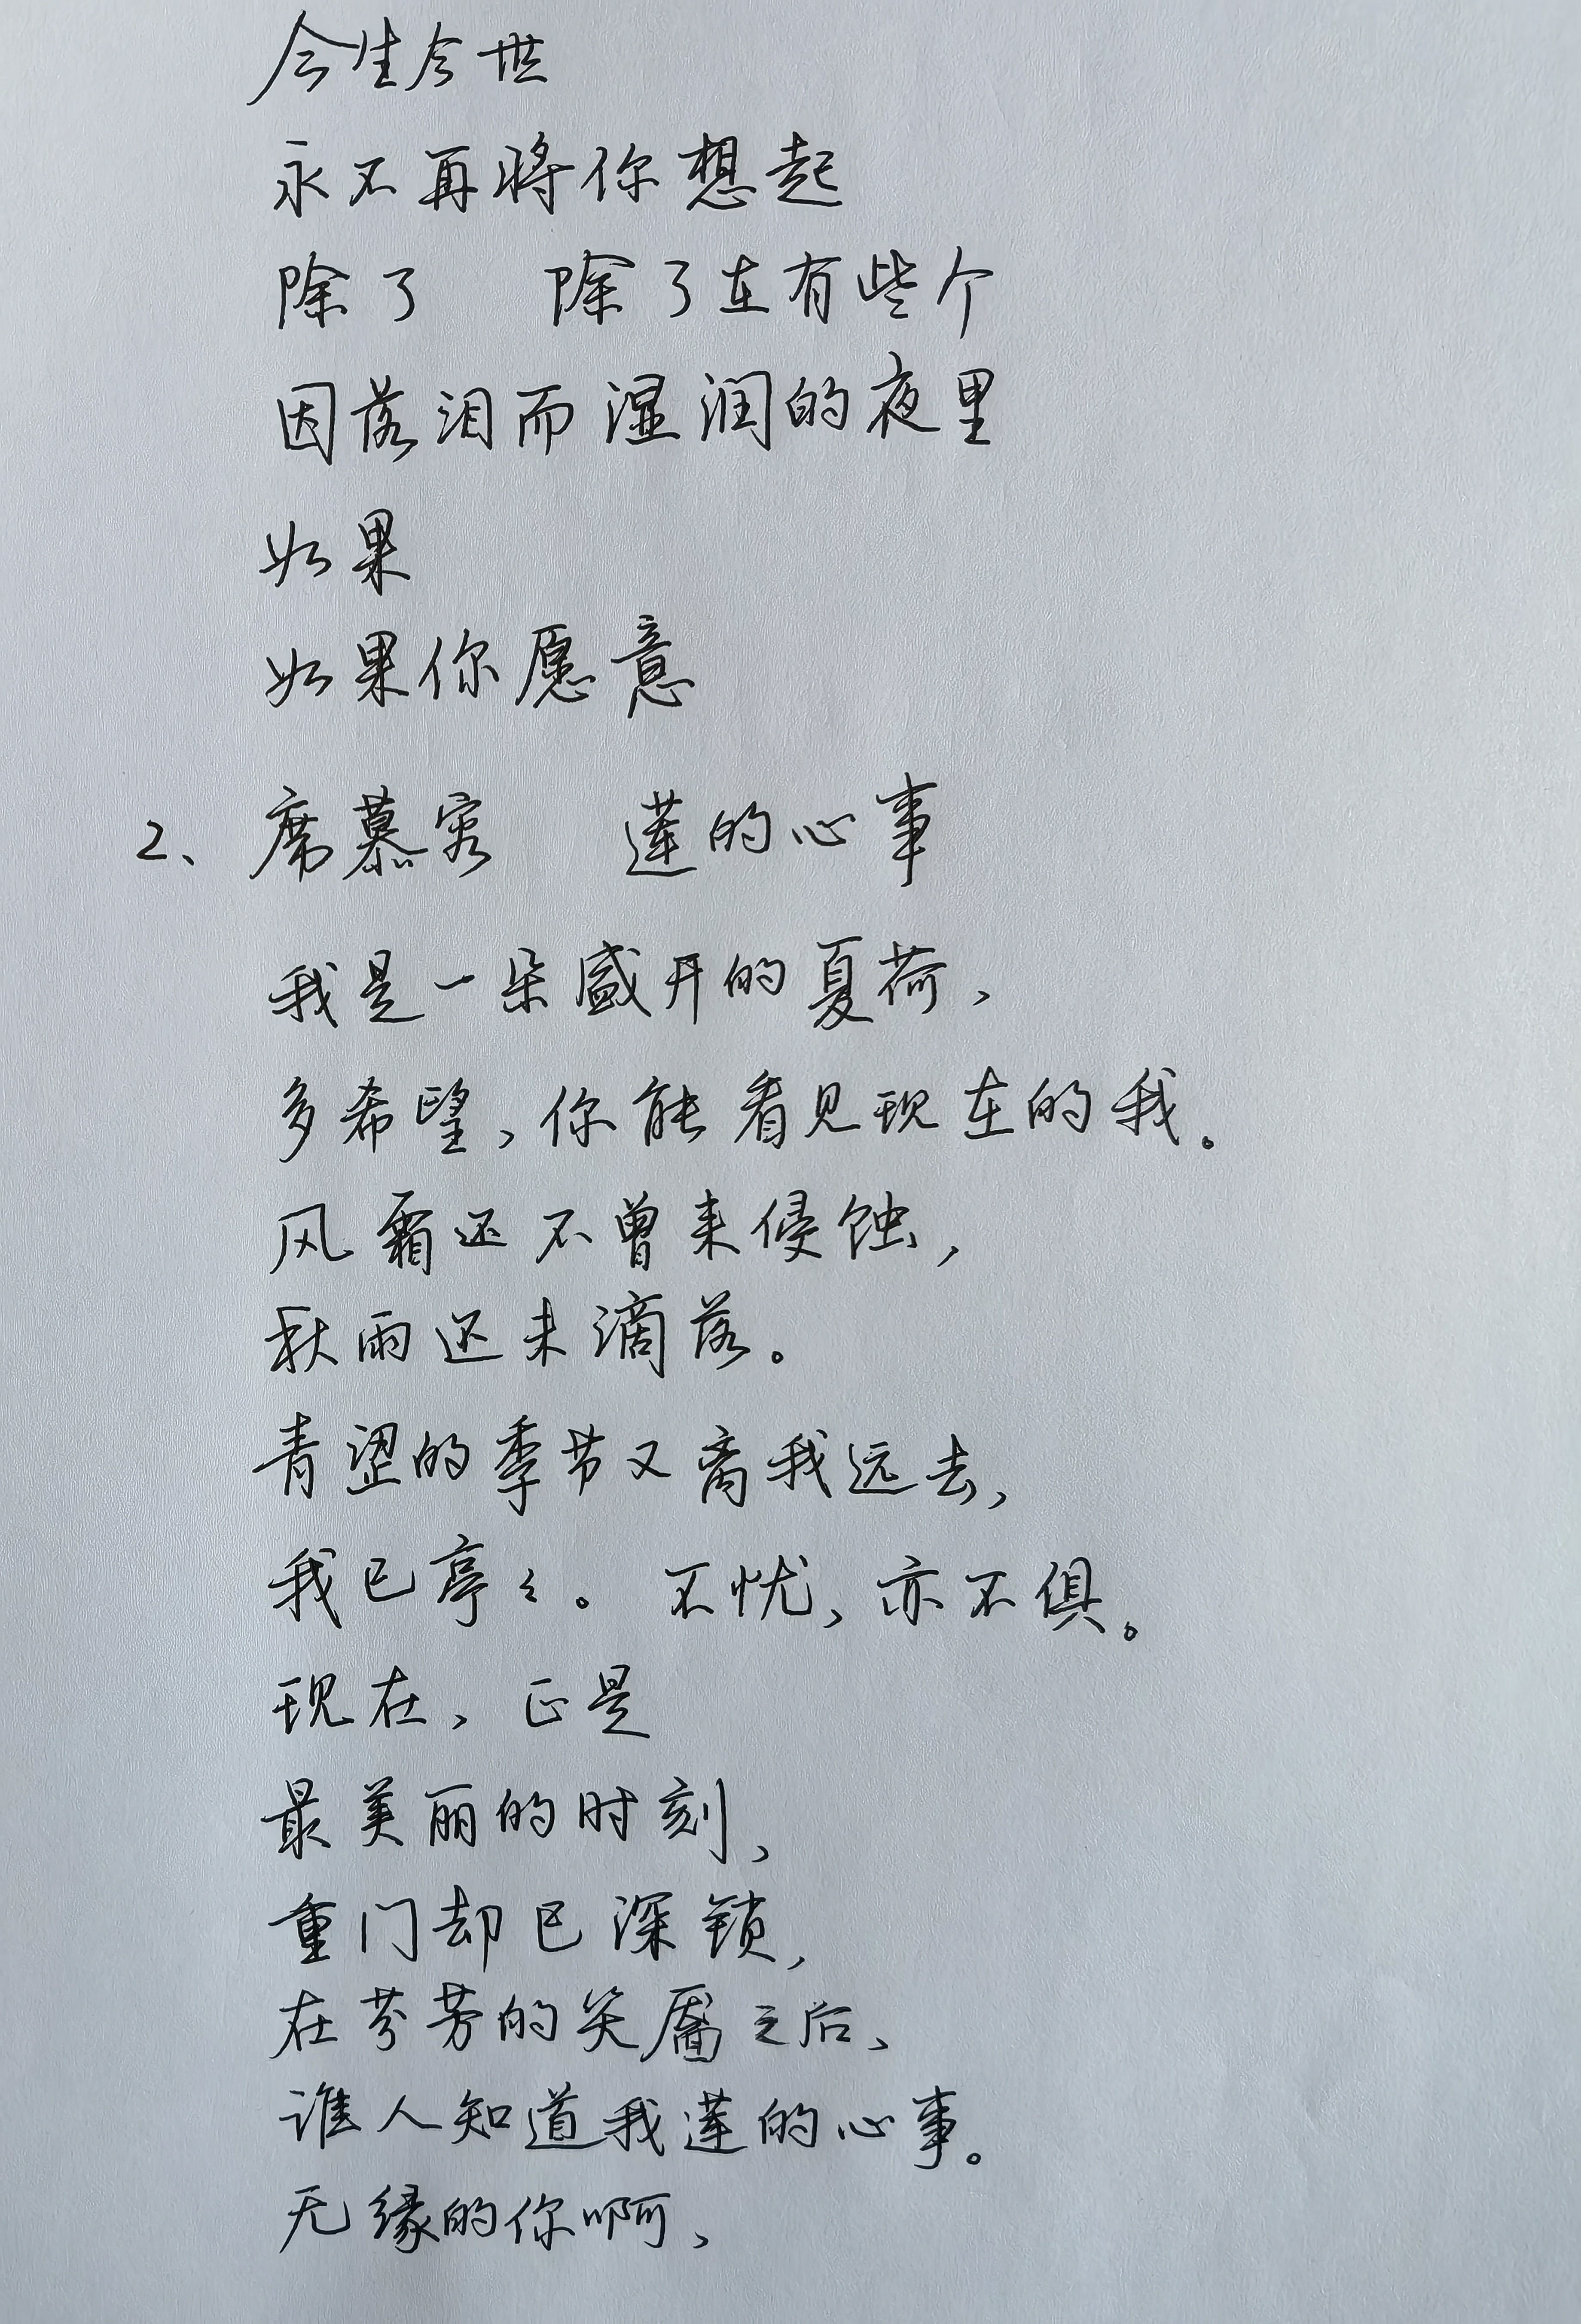 今生今世
永不再将你想起
除了 除了在有些个
因落泪而湿润的夜里
如果
如果你愿意
2、席慕容 莲的心事
我是一朵盛开的夏荷、
多希望,你能看见现在的我。
风霜还不曾来侵蚀,
秋雨还未滴落。
青涩的季节又离我远去,
我已亭々。不忧,亦不俱。
现在,正是
最美丽的时刻、
重门却已深锁,
在芬芳的笑靥之后、
谁人知道我莲的心事。
无缘的你啊、